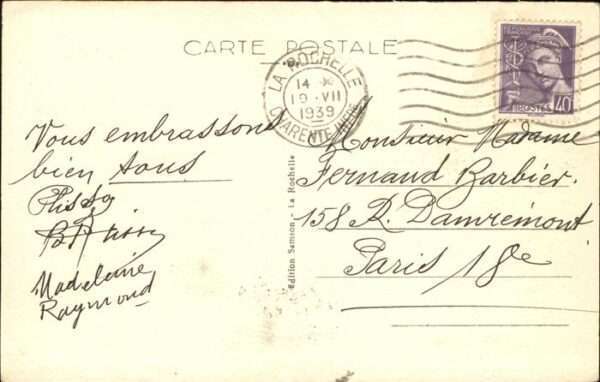 CARTE POSTALE
LA ROCHELLE
14 H
19 - VII
1939
CHARENTE-INFRE
POSTES
40c
Vous embrassons
bien tous
Madeleine
Raymond
Edition Samson - La Rochelle
Monsieur Madame
Fernand Barbier.
158 R. Damrémont
Paris 18e